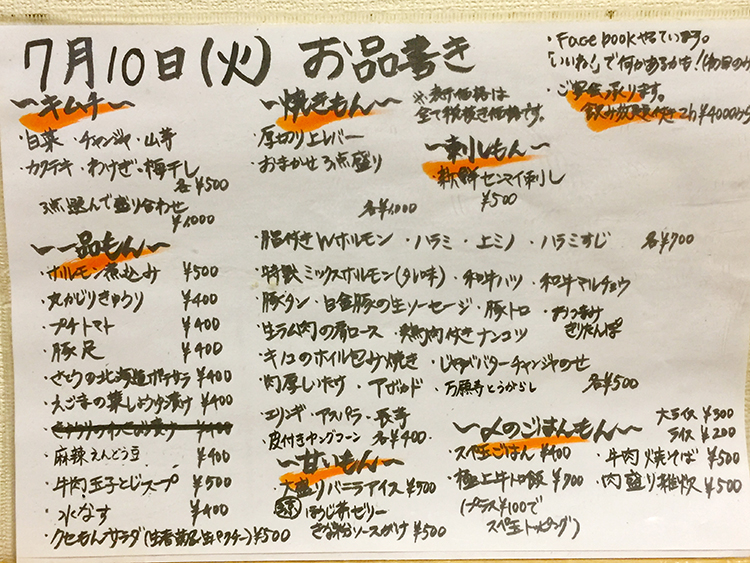 7月10日(火) お品書き
・Facebookやっています。
「いいね!」で何かあるかも!
・ご宴会承ります。
飲み放題付き2h ¥4000から
※表示価格は
全て税抜き価格です。
〜キムチ〜
・白菜・チャンジャ・山芋
・カクテキ・わけぎ・梅干し
各¥500
3点選んで盛り合わせ
¥1000
〜焼きもん〜
・厚切り上レバー
・おまかせ3点盛り
各¥1000
〜刺しもん〜
・新鮮センマイ刺し
¥500
・脂付きWホルモン・ハラミ・上ミノ・ハラミすじ 各¥700
・特製ミックスホルモン(タレ味)・和牛ハツ・和牛マルチョウ
・豚タン・白金豚の生ソーセージ・豚トロ・おつまみ
きりたんぽ
・生ラム肉の肩ロース・鶏肉付きナンコツ
・キノコのホイル包み焼き・じゃがバターチャンジャのせ
・肉厚しいたけ・アボカド・万願寺とうがらし 各¥500
・エリンギ・アスパラ・長芋
・皮付きヤングコーン 各¥400
〜一品もん〜
・ホルモン煮込み ¥500
・丸かじりきゅうり ¥400
・プチトマト ¥400
・豚足 ¥400
・さとうの北海道ポテサラ ¥400
・えごまの葉しょうゆ漬け ¥400
¥400
・麻辣えんどう豆 ¥400
・牛肉玉子とじスープ ¥500
・水なす ¥400
・クセもんサラダ(生春菊&生パクチー) ¥500
〜甘いもん〜
・大盛りバニラアイス ¥500
・ほうじ茶ゼリー
きな粉ソースがけ ¥500
〜〆のごはんもん〜
大ライス ¥300
ライス ¥200
・スペ玉ごはん ¥400
・極上牛トロ飯 ¥900
(プラス¥100で
スペ玉トッピング)
・牛肉焼そば ¥500
・肉盛り雑炊 ¥500